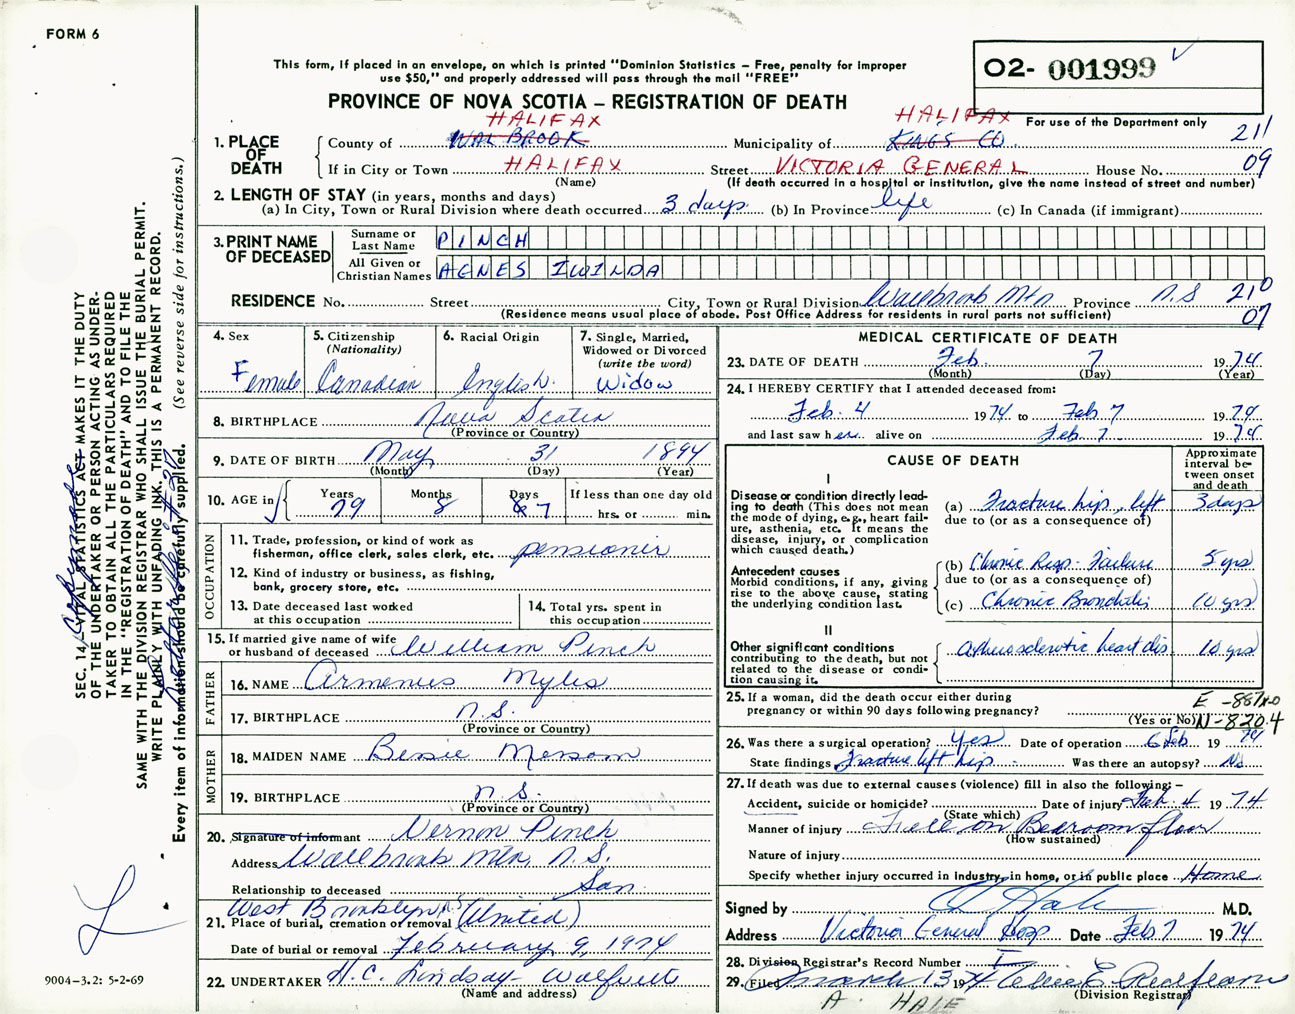 FORM 6
This form, if placed in an envelope, on which is printed "Dominion Statistics – Free, penalty for improper
use $50," and properly addressed will pass through the mail "FREE"
O2- 001999
PROVINCE OF NOVA SCOTIA – REGISTRATION OF DEATH
For use of the Department only
HALIFAX HALIFAX
1. PLACE OF DEATH
County of WAL BROOK Municipality of KINGS CO. 211
If in City or Town HALIFAX Street VICTORIA GENERAL House No. 09
(Name) (If death occurred in a hospital or institution, give the name instead of street and number)
2. LENGTH OF STAY (in years, months and days)
(a) In City, Town or Rural Division where death occurred 3 days (b) In Province life (c) In Canada (if immigrant)
3. PRINT NAME OF DECEASED
Surname or Last Name PINCH
All Given or Christian Names AGNES IWILDA
RESIDENCE No. Street City, Town or Rural Division Wallbrook Mtn Province N.S 210
(Residence means usual place of abode. Post Office Address for residents in rural parts not sufficient) 07
4. Sex Female
5. Citizenship (Nationality) Canadian
6. Racial Origin English
7. Single, Married, Widowed or Divorced (write the word) Widow
8. BIRTHPLACE Nova Scotia
(Province or Country)
9. DATE OF BIRTH May 31 1894
(Month) (Day) (Year)
10. AGE in Years 79 Months 8 Days 7 If less than one day old
hrs. or min.
OCCUPATION
11. Trade, profession, or kind of work as
fisherman, office clerk, sales clerk, etc. pensioner
12. Kind of industry or business, as fishing,
bank, grocery store, etc.
13. Date deceased last worked
at this occupation
14. Total yrs. spent in
this occupation
15. If married give name of wife
or husband of deceased William Pinch
FATHER
16. NAME Armenius Myles
17. BIRTHPLACE N.S.
(Province or Country)
MOTHER
18. MAIDEN NAME Bessie Messom
19. BIRTHPLACE N.S.
(Province or Country)
20. Signature of informant Vernon Pinch
Address Wallbrook Mtn. N.S.
Relationship to deceased Son
West Brooklyn, N.S (United)
21. Place of burial, cremation or removal
Date of burial or removal February 9, 1974
22. UNDERTAKER H.C. Lindsay - Wolfville
(Name and address)
MEDICAL CERTIFICATE OF DEATH
23. DATE OF DEATH Feb. 7 1974
(Month) (Day) (Year)
24. I HEREBY CERTIFY that I attended deceased from:
Feb. 4 1974 to Feb 7 1974
and last saw her alive on Feb 7 1974
CAUSE OF DEATH
Approximate interval between onset and death
I
Disease or condition directly leading to death (This does not mean the mode of dying, e.g., heart failure, asthenia, etc. It means the disease, injury, or complication which caused death.)
(a) Fracture hip, left 3 days
due to (or as a consequence of)
Antecedent causes
Morbid conditions, if any, giving rise to the above cause, stating the underlying condition last.
(b) Chronic Resp. Failure 5 yrs
due to (or as a consequence of)
(c) Chronic Bronchitis 10 yrs
II
Other significant conditions
contributing to the death, but not related to the disease or condition causing it.
atherosclerotic heart dis 10 yrs
25. If a woman, did the death occur either during
pregnancy or within 90 days following pregnancy?
(Yes or No) N-820.4
26. Was there a surgical operation? yes Date of operation 6 Feb 1974
State findings Fracture left hip Was there an autopsy? No
27. If death was due to external causes (violence) fill in also the following:–
Accident, suicide or homicide? Date of injury Feb. 4 1974
(State which)
Manner of injury Fell on Bedroom floor
(How sustained)
Nature of injury
Specify whether injury occurred in industry, in home, or in public place Home
Signed by A Hale M.D.
Address Victoria General Hosp Date Feb 7 1974
28. Division Registrar's Record Number
29. Filed March 13 1974
(Division Registrar)
A. HALE
SEC. 14, VITAL STATISTICS ACT MAKES IT THE DUTY
OF THE UNDERTAKER OR PERSON ACTING AS UNDER-
TAKER TO OBTAIN ALL THE PARTICULARS REQUIRED
IN THE "REGISTRATION OF DEATH" AND TO FILE THE
SAME WITH THE DIVISION REGISTRAR WHO SHALL ISSUE THE BURIAL PERMIT.
WRITE PLAINLY WITH UNFADING INK. THIS IS A PERMANENT RECORD.
Every item of information should be carefully supplied. (See reverse side for instructions.)
9004-3.2: 5-2-69